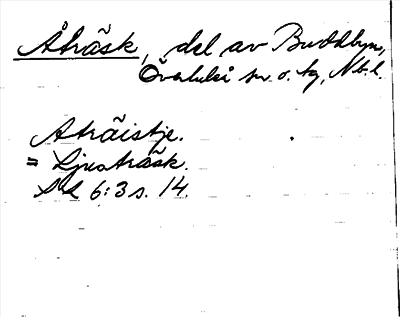 Åträsk, del av Buddbyn,
Överluleå sn. o. tg, Nb. l.
Aträistje.
= Ljusträsk.
6:3 s. 14.